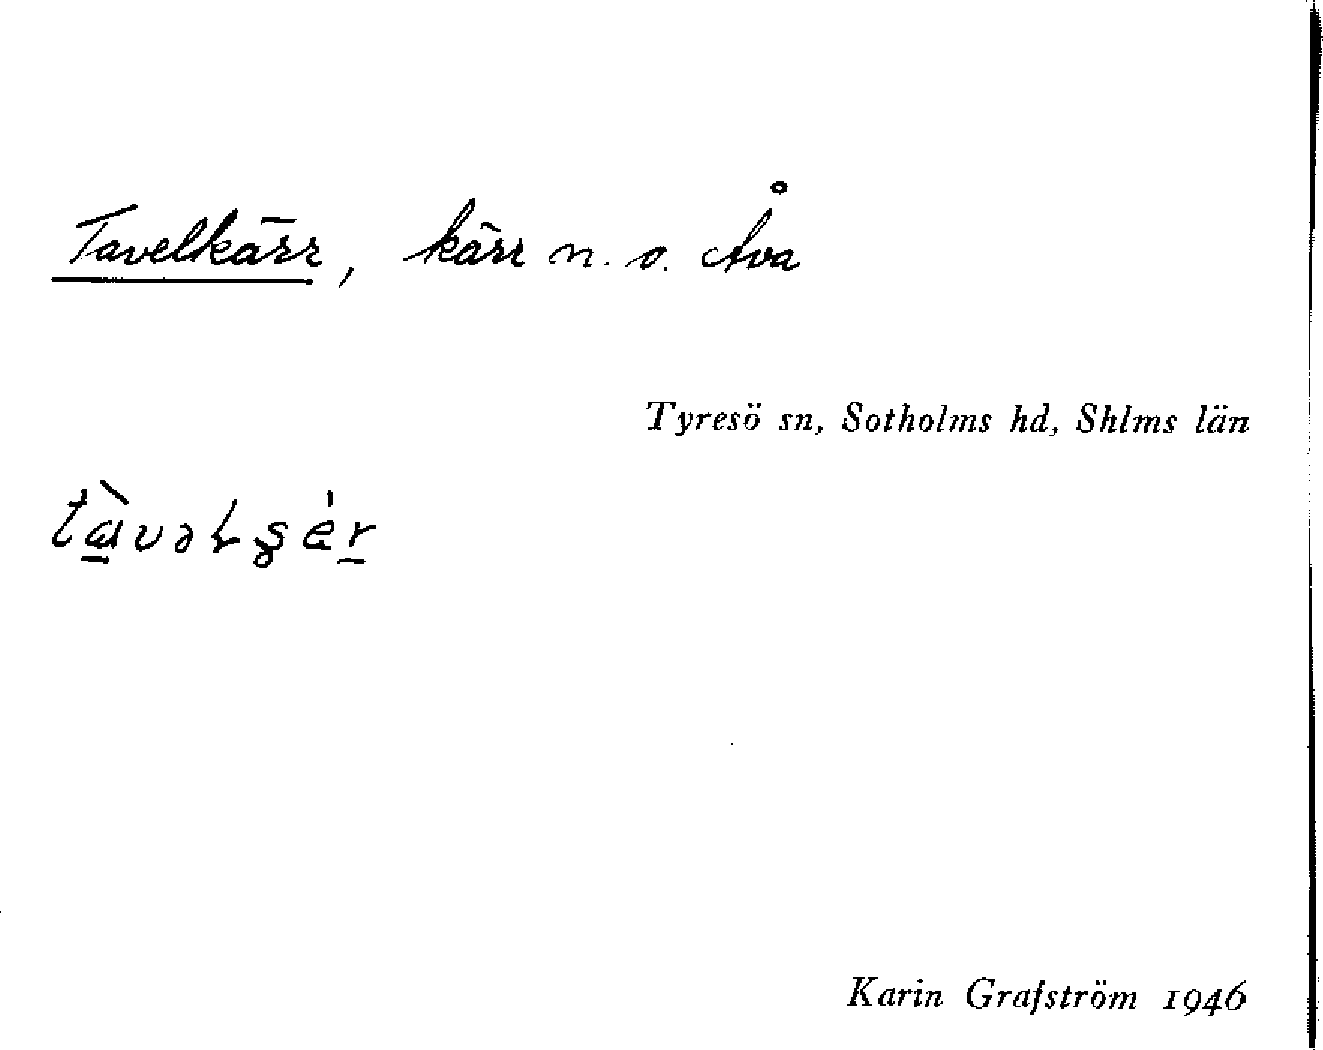 Tavelkärr, kärr n. o. Åva
Tyresö sn, Sotholms hd, Shlms län
Karin Grafström 1946